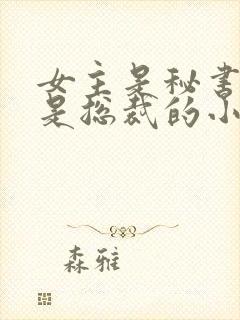 女主是秘书
是总裁的小
森雅